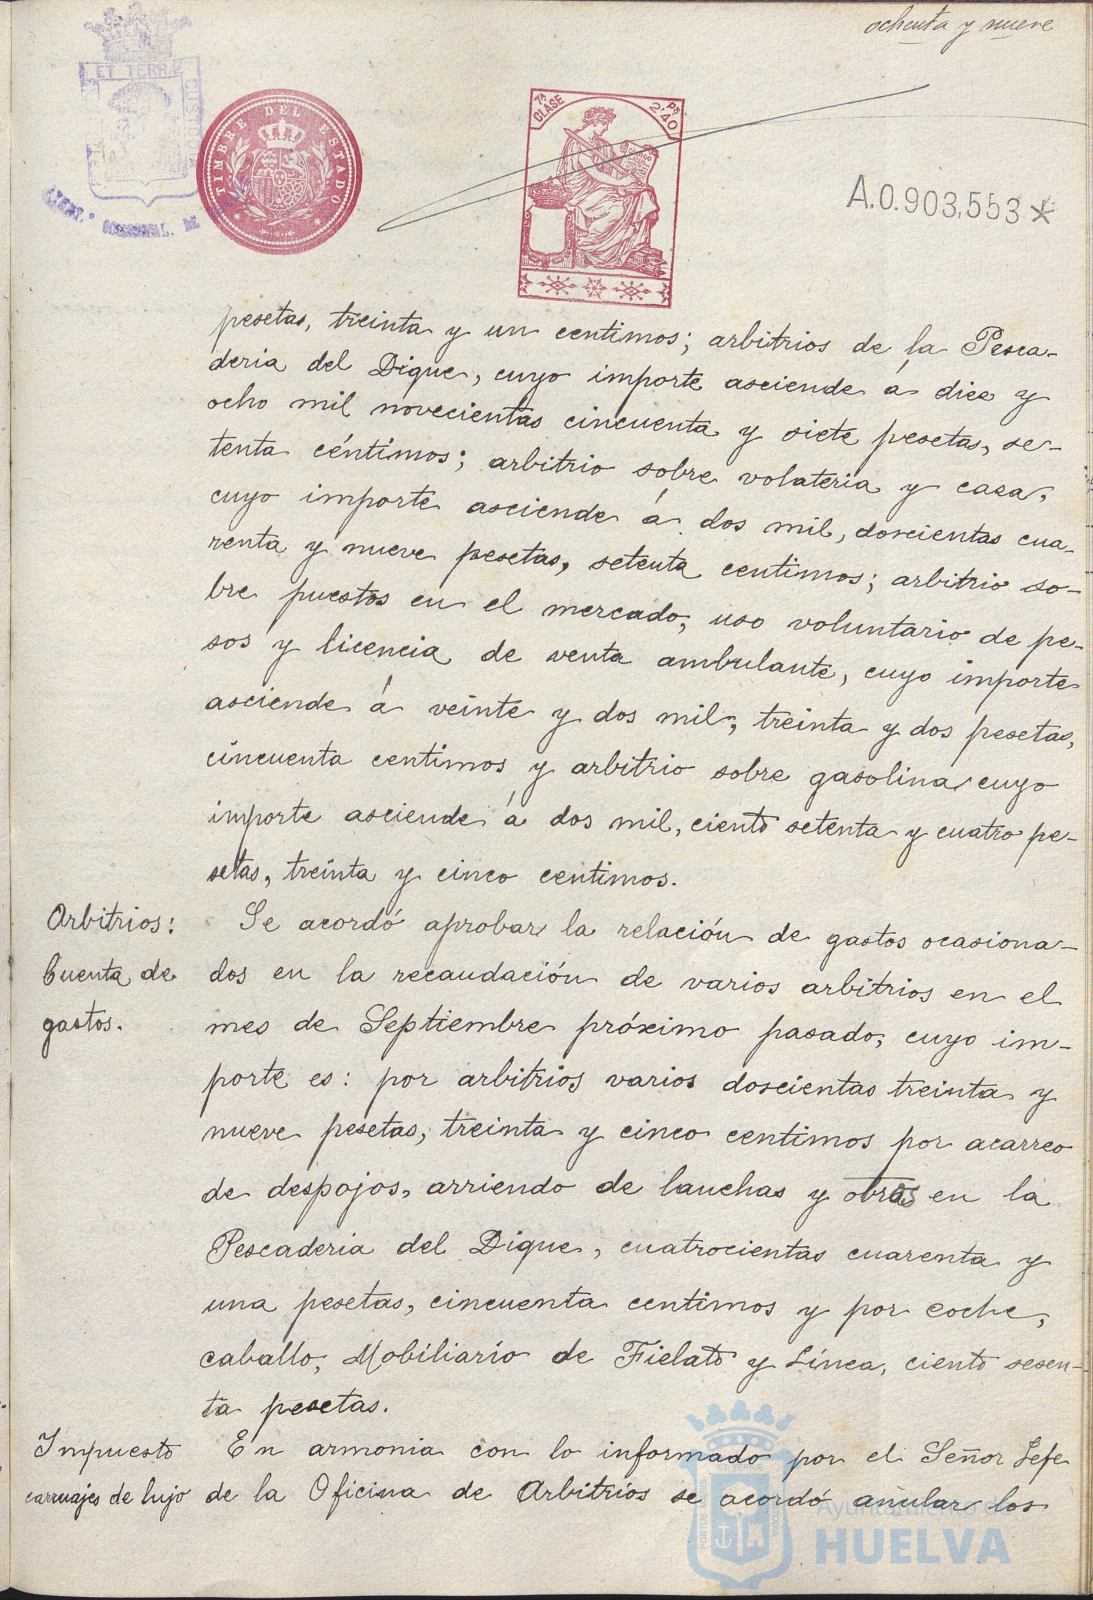 ochenta y nueve
ET TERRÆ CUSTODIA
TIMBRE DEL ESTADO
7ª CLASE
Ps 2'40
A.0.903,553*
pesetas, treinta y un centimos; arbitrios de la Pesca-
deria del Dique, cuyo importe asciende á diez y
ocho mil novecientas cincuenta y siete pesetas, se-
tenta céntimos; arbitrio sobre volateria y caza,
cuyo importe asciende á dos mil, doscientas cua-
renta y nueve pesetas, setenta centimos; arbitrio so-
bre puestos en el mercado, uso voluntario de pe-
sos y licencia de venta ambulante, cuyo importe
asciende á veinte y dos mil, treinta y dos pesetas,
cincuenta centimos y arbitrio sobre gasolina cuyo
importe asciende á dos mil, ciento setenta y cuatro pe-
setas, treinta y cinco centimos.
Arbitrios:
Cuenta de
gastos.
Se acordó aprobar la relación de gastos ocasiona-
dos en la recaudación de varios arbitrios en el
mes de Septiembre próximo pasado, cuyo im-
porte es: por arbitrios varios doscientas treinta y
nueve pesetas, treinta y cinco centimos por acarreo
de despojos, arriendo de lanchas y obras en la
Pescaderia del Dique, cuatrocientas cuarenta y
una pesetas, cincuenta centimos y por coche,
caballo, Mobiliario de Fielato y Línea, ciento sesen-
ta pesetas.
Impuesto
carruajes de lujo
En armonia con lo informado por el Señor Jefe
de la Oficina de Arbitrios se acordó anular los
Ayuntamiento de
HUELVA